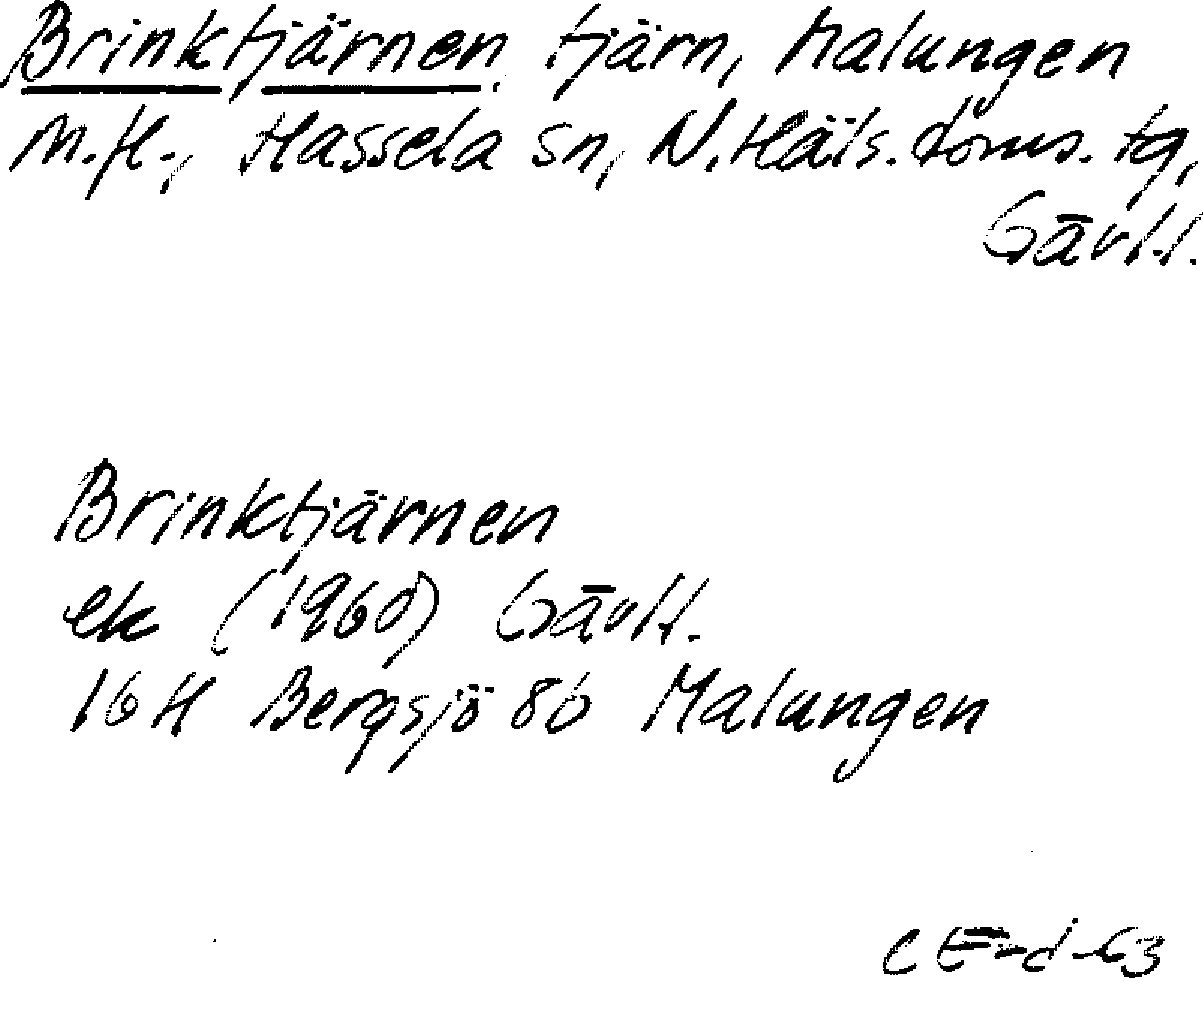 Brinktjärnen, tjärn, Malungen
m.fl., Hassela sn, N. Häls. doms. tg,
Gävl.l.
Brinktjärnen
ek (1960) Gävl.l.
16 H Bergsjö 8b Malungen